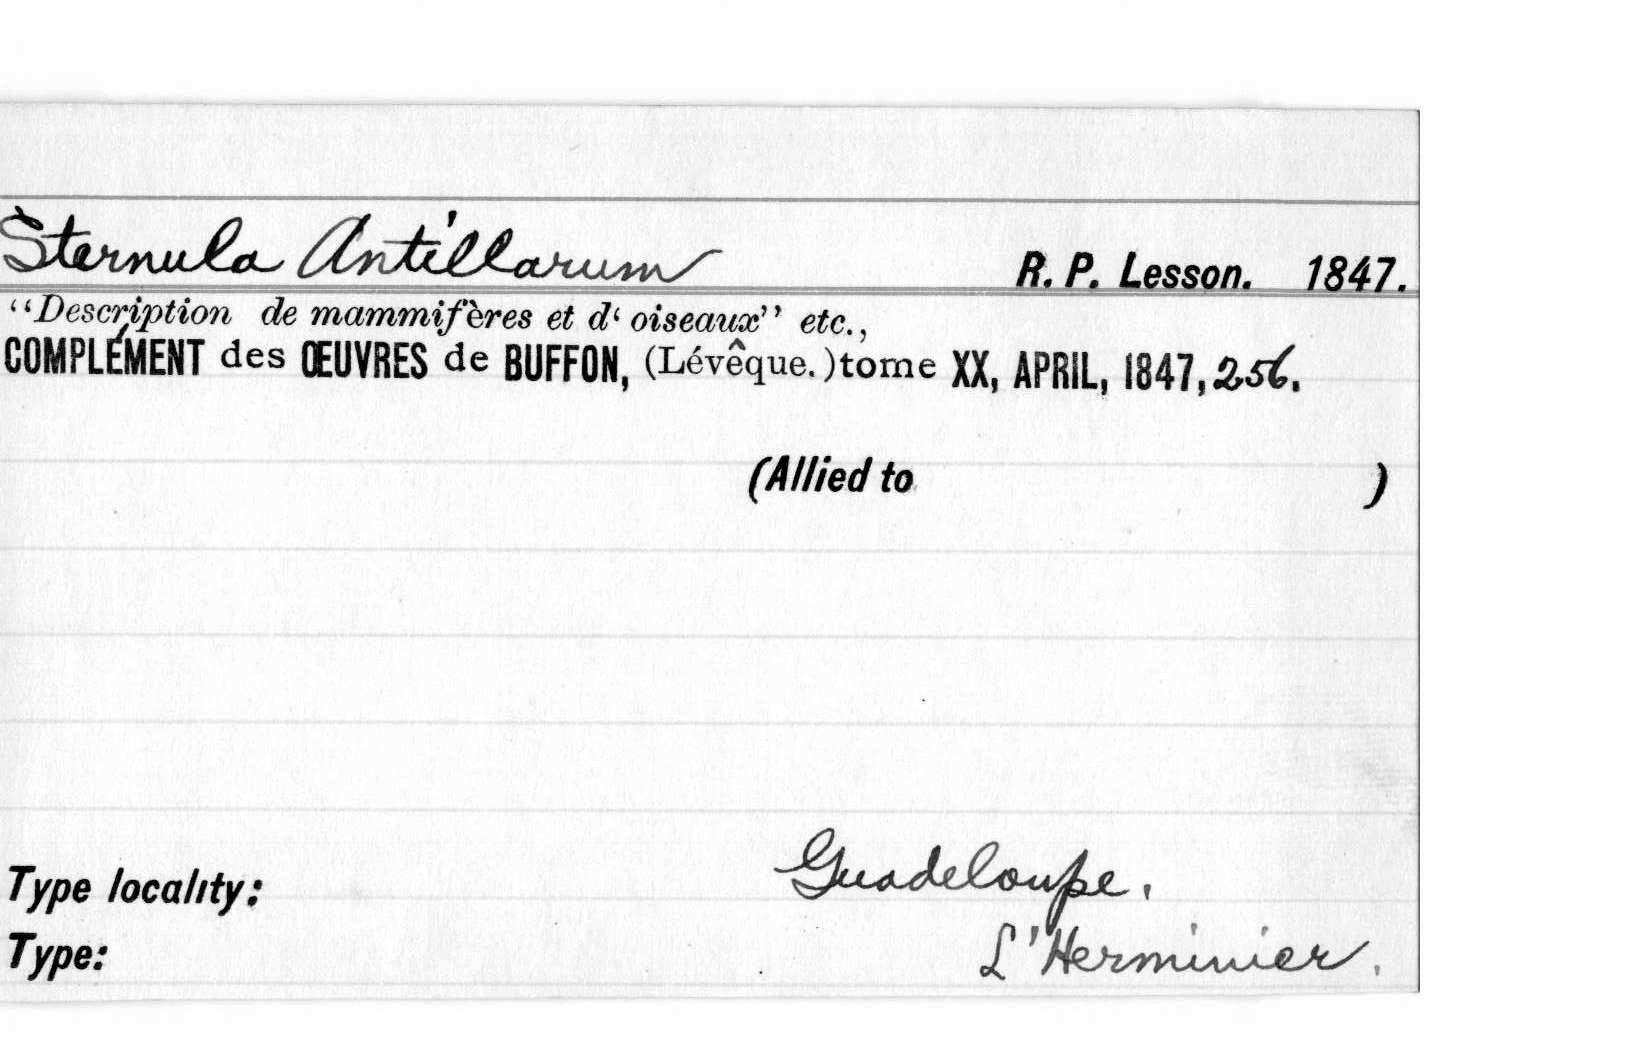 Sternula Antillarum R. P. Lesson. 1847.
“Description de mammifères et d‘ oiseaux” etc.,
COMPLÉMENT des ŒUVRES de BUFFON, (Lévêque.) tome XX, APRIL, 1847, 256.
(Allied to )
Type locality: Guadeloupe.
Type: L'Herminier.